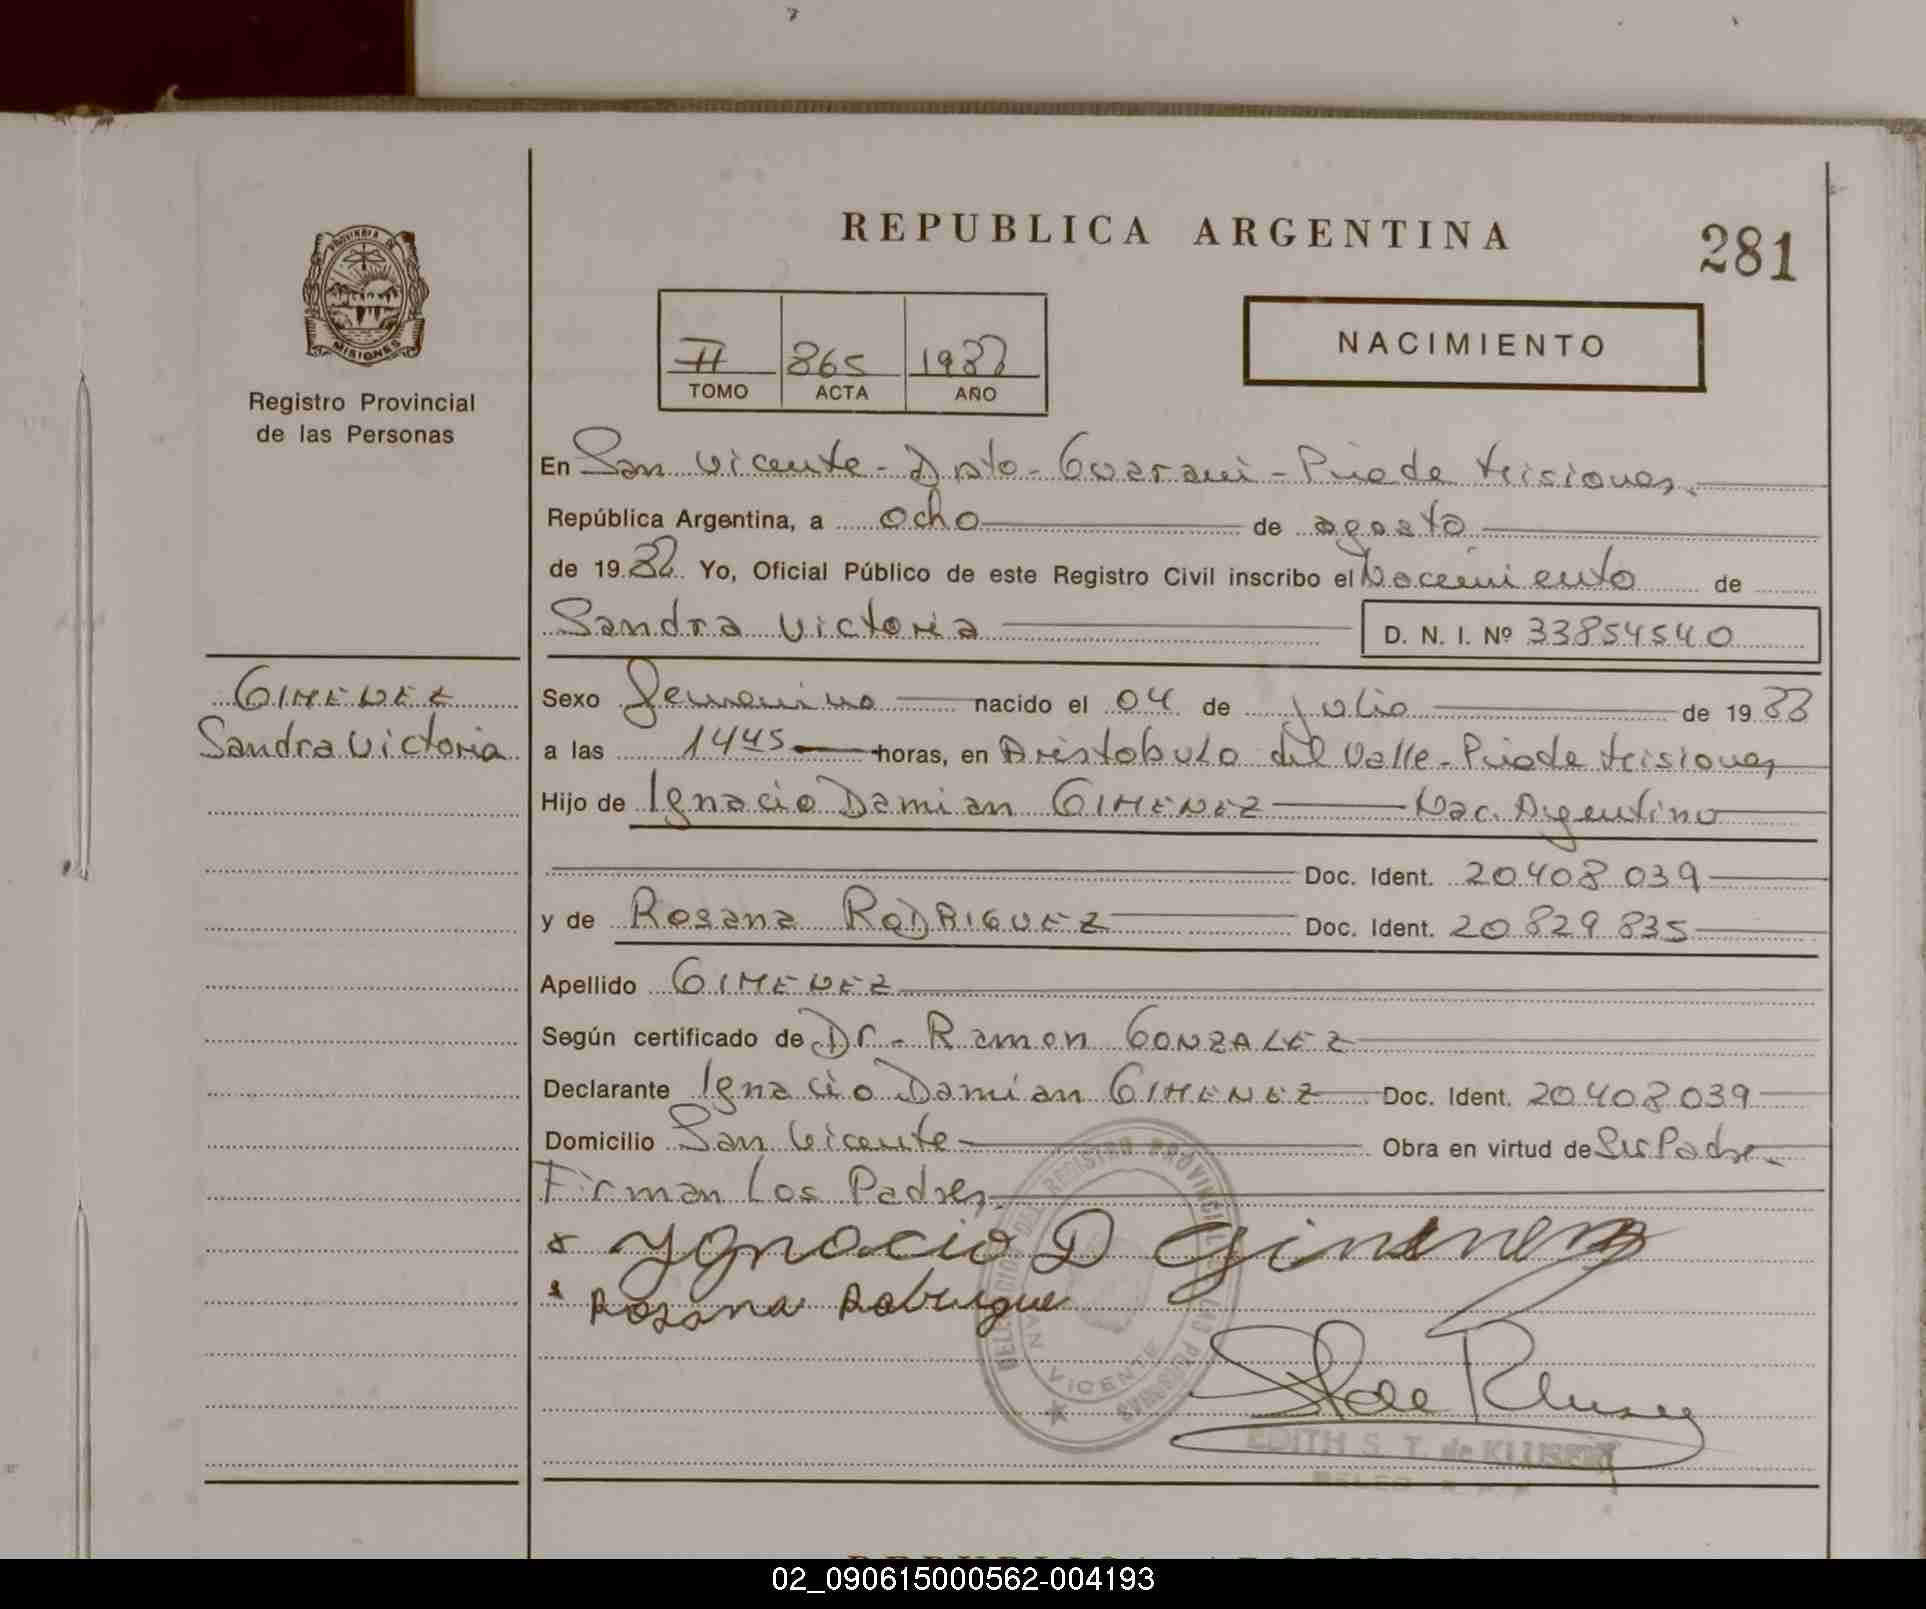 REPUBLICA ARGENTINA
281
PROVINCIA DE
MISIONES
Registro Provincial
de las Personas
II 865 1988
TOMO ACTA AÑO
NACIMIENTO
En San Vicente - Dpto - Guarani - Pciade Misiones.
República Argentina, a ocho de agosto
de 1988. Yo, Oficial Público de este Registro Civil inscribo el Nacimiento de
Sandra Victoria D. N. I. Nº 33854540
GIMENEZ
Sandra Victoria
Sexo Femenino nacido el 04 de julio de 1988
a las 1445 horas, en Aristobulo del Valle - Pciade Misiones
Hijo de Ignacio Damian GIMENEZ Nac. Argentino
Doc. Ident. 20408039
y de Rosana RODRIGUEZ Doc. Ident. 20829835
Apellido GIMENEZ
Según certificado de Dr - Ramon GONZALEZ
Declarante Ignacio Damian GIMENEZ Doc. Ident. 20408039
Domicilio San Vicente - Obra en virtud de Ser Padre.
Firman Los Padres.
Ygnacio D Gimenez
Rosana
DELEGACION DEL REGISTRO PROVINCIAL DE LAS PERSONAS
SAN VICENTE
EDITH S. T. de
02_090615000562-004193